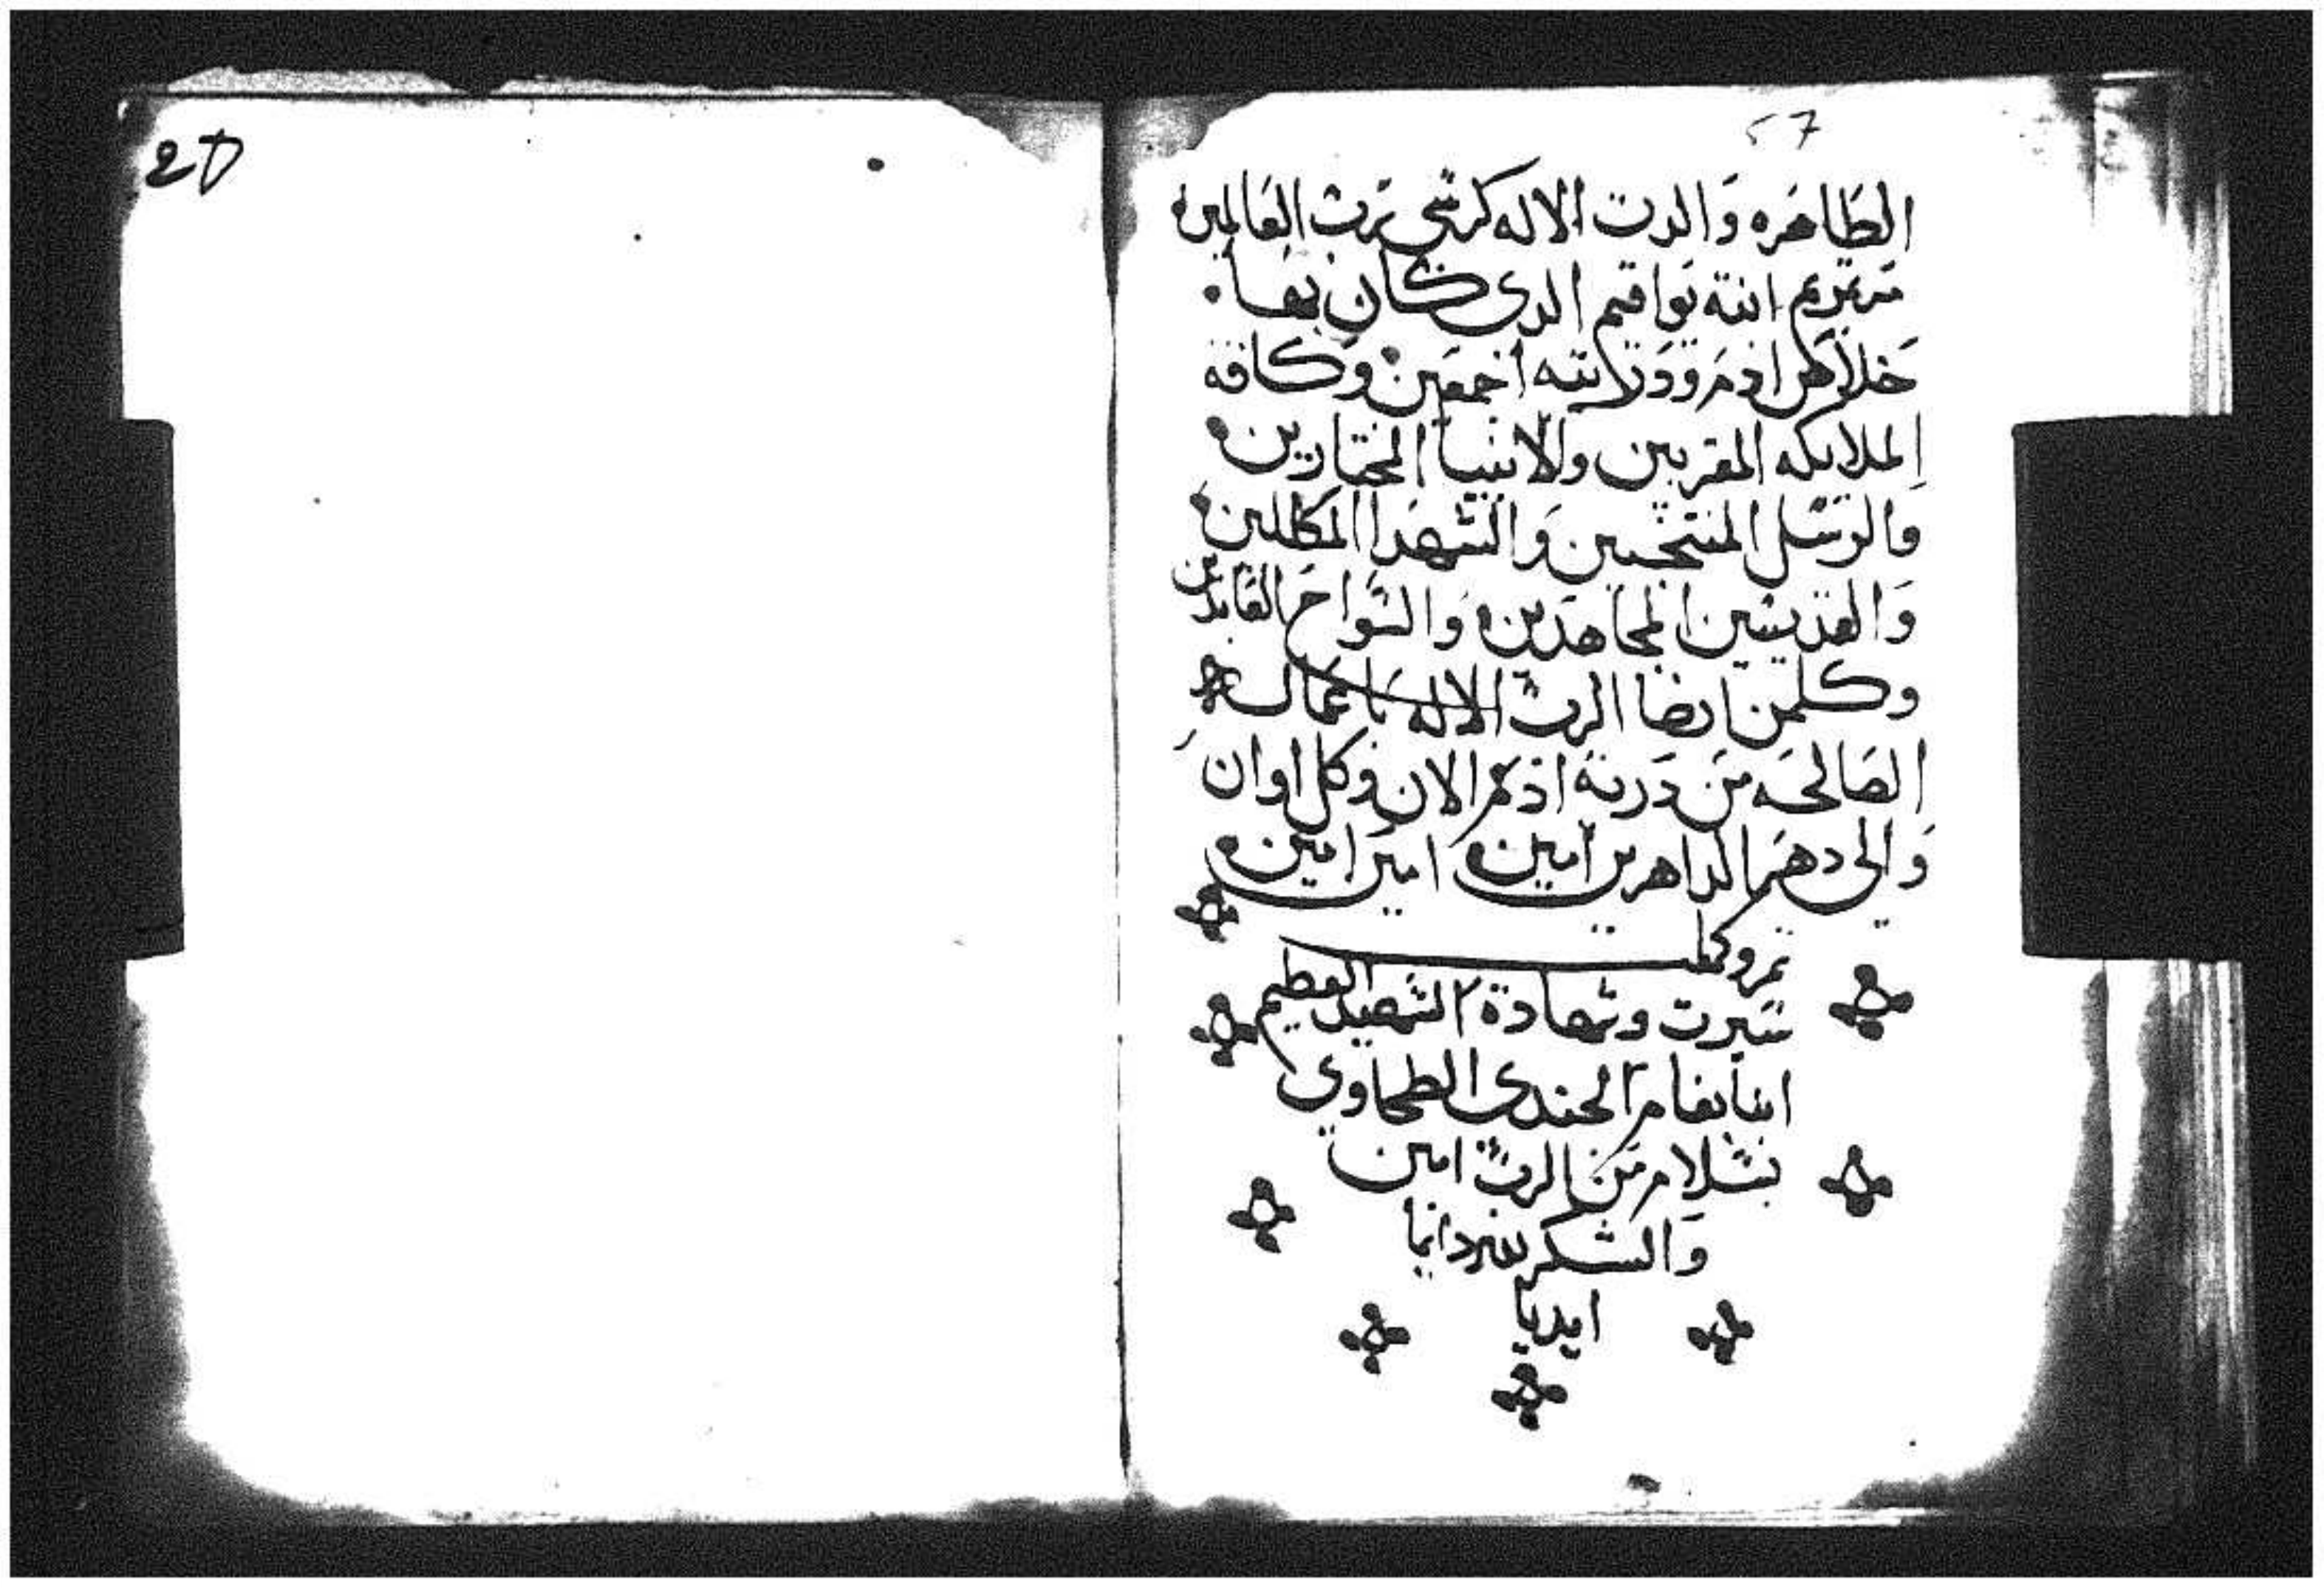 57
الطاهره والدت الاله كرسي رب العالمين
مرتمريم ابنة يواقيم الدي كان بها
خلاص ادم ودريته اجمعين وكافة
الملايكه المقربين والانبيا المختارين
والرسل المنتجبين والشهدا المكللين
والقديسين المجاهدين والسواح العابدين
وكلمن ارضا الرب الاله باعمال
الصالحه من درية ادم الان وكل اوان
والى دهر الداهرين امين امين امين
تم وكمل
سيرت وشهادة الشهيد العظيم
ابنا بفام الجندي الطحاوي
بسلام من الرب امين
والشكر لله دايما
ابديا